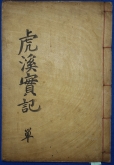 虎溪實記
單